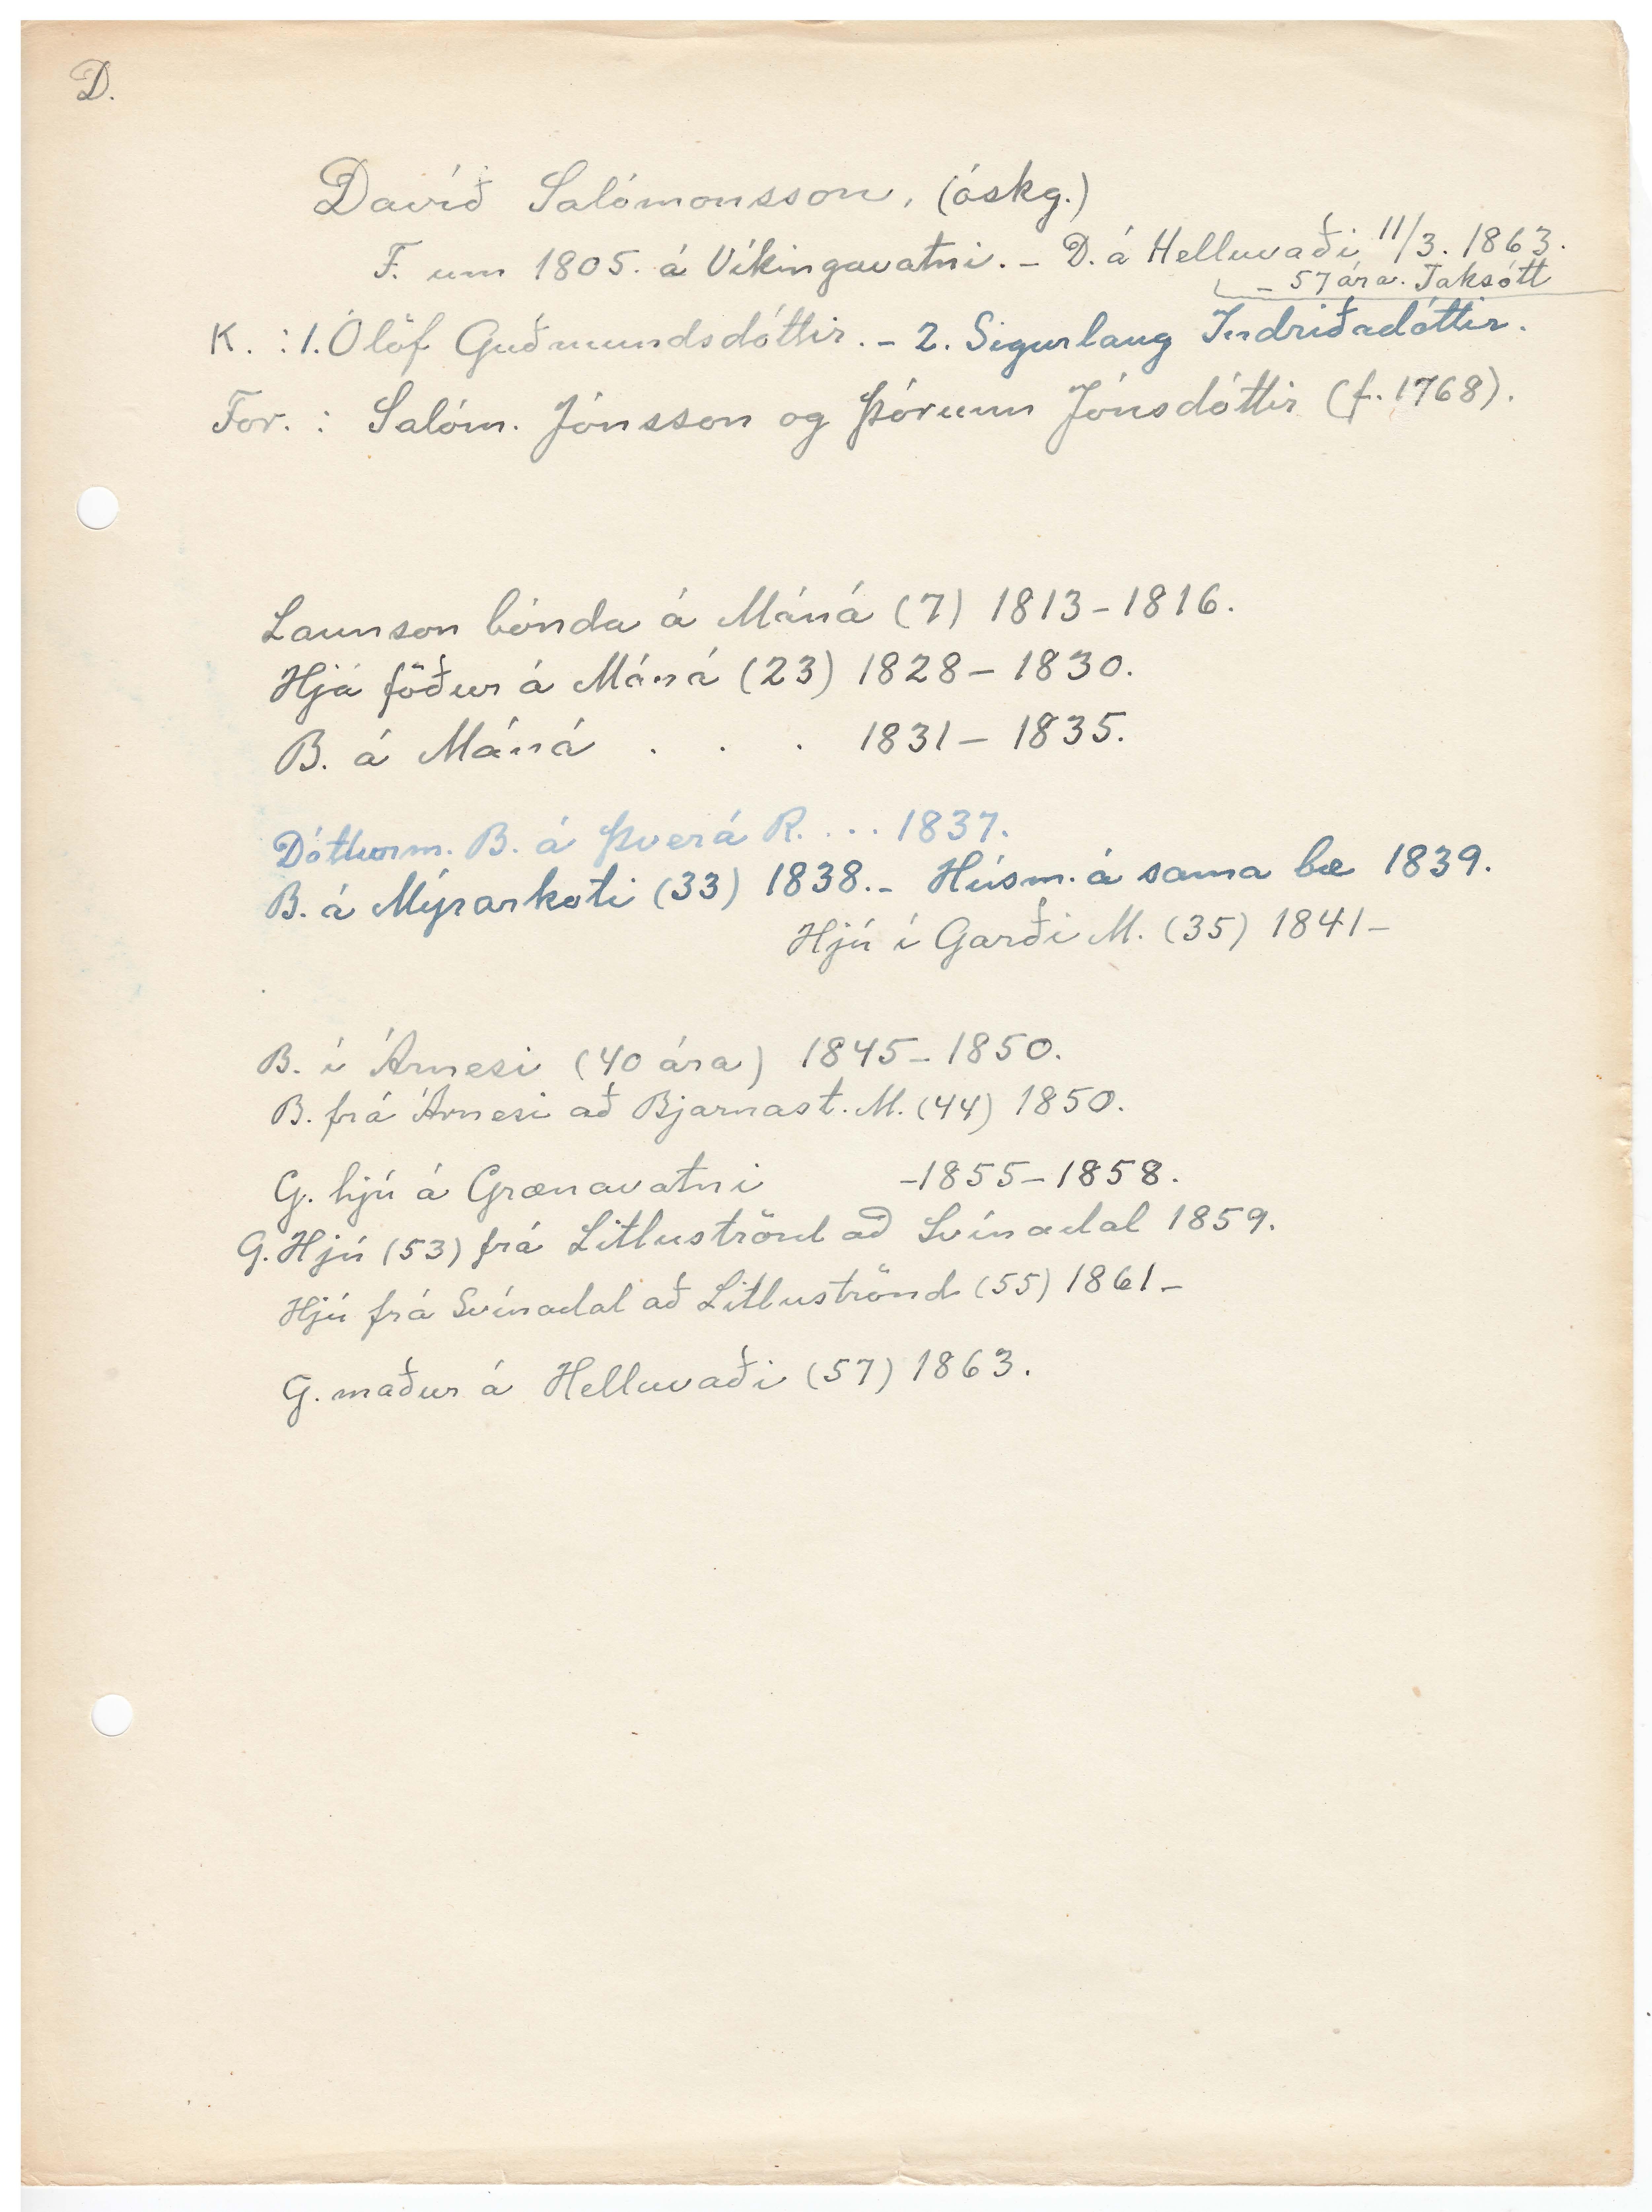 D.
Davíð Salómonsson, (óskg.)
F. um 1805. á Víkingavatni. - D. á Helluvaði 11/3. 1863.
- 57 ára. Taksótt
K. : 1. Ólöf Guðmundsdóttir. - 2. Sigurlaug Indriðadóttir.
For. : Salóm. Jónsson og Þórunn Jónsdóttir (f. 1768).
Launson bónda á Máná (7) 1813-1816.
Hjá föður á Máná (23) 1828-1830.
B. á Máná . . . 1831-1835.
Dótturm. B. á Þverá R. ... 1837.
B. á Mýrarkoti (33) 1838. - Húsm. á sama bæ 1839.
Hjú í Garði M. (35) 1841-
B. í Árnesi (40 ára) 1845-1850.
B. frá Árnesi að Bjarnast. M. (44) 1850.
G. hjú á Grænavatni -1855-1858.
G. Hjú (53) frá Litluströnd að Svínadal 1859.
Hjú frá Svínadal að Litluströnd (55) 1861-
G. maður á Helluvaði (57) 1863.